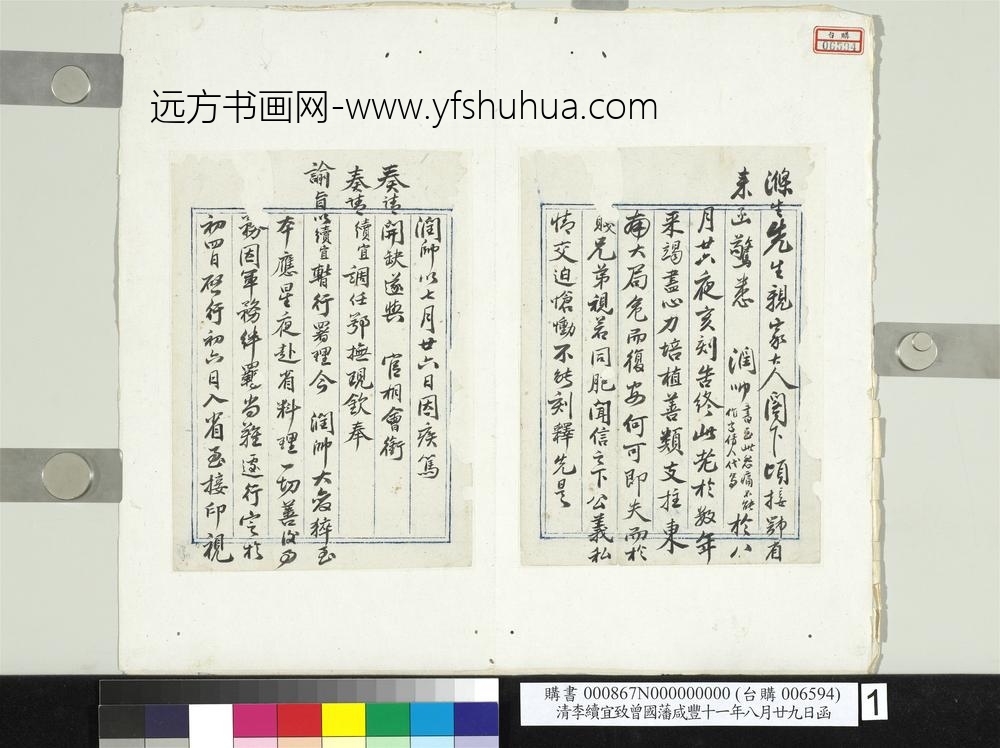 台購
06594
远方书画网-www.yfshuhua.com
滌生先生親家大人閣下頃接鄂省
來函驚悉 潤帥書至此忽痛不能作字倩人代寫於八
月廿六夜亥刻告終此老於數年
來竭盡心力培植善類支拄東
南大局危而復安何可即失而於
貺兄弟視若同胞聞信之下公義私
情交迫愴慟不能刻釋先是
潤帥以七月廿六日因疾篤
奏請開缺遂與 官相會銜
奏請續宜調任鄂撫現欽奉
諭旨以續宜暫行署理今 潤帥大变猝至
本應星夜赴省料理一切善後事
務因軍務絆羈尚難遽行定於
初四日啓行初六日入省至接印視
購書 000867N000000000 (台購 006594)
清李續宜致曾國藩咸豐十一年八月廿九日函
1